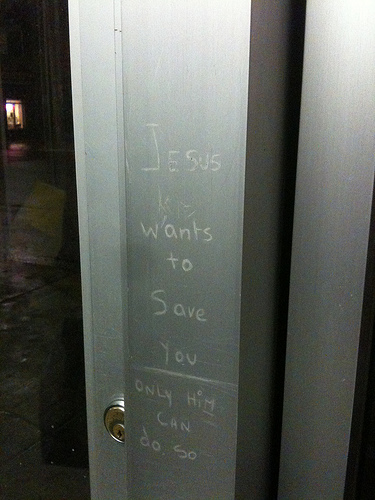 JESUS
wants
to
Save
You
ONLY HIM
CAN
do so